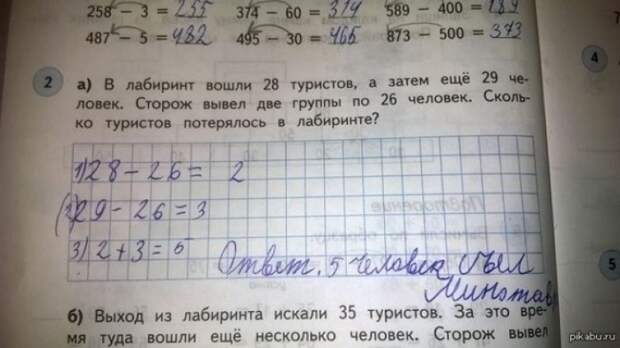 258 − 3 = 255 374 − 60 = 314 589 − 400 = 189
487 − 5 = 482 495 − 30 = 465 873 − 500 = 373
2 а) В лабиринт вошли 28 туристов, а затем ещё 29 че-
ловек. Сторож вывел две группы по 26 человек. Сколь-
ко туристов потерялось в лабиринте?
4
1) 28 − 26 = 2
2) 29 − 26 = 3
3) 2 + 3 = 5
Ответ. 5 человек съел
Минотав
5
б) Выход из лабиринта искали 35 туристов. За это вре-
мя туда вошли ещё несколько человек. Сторож вывел
pikabu.ru